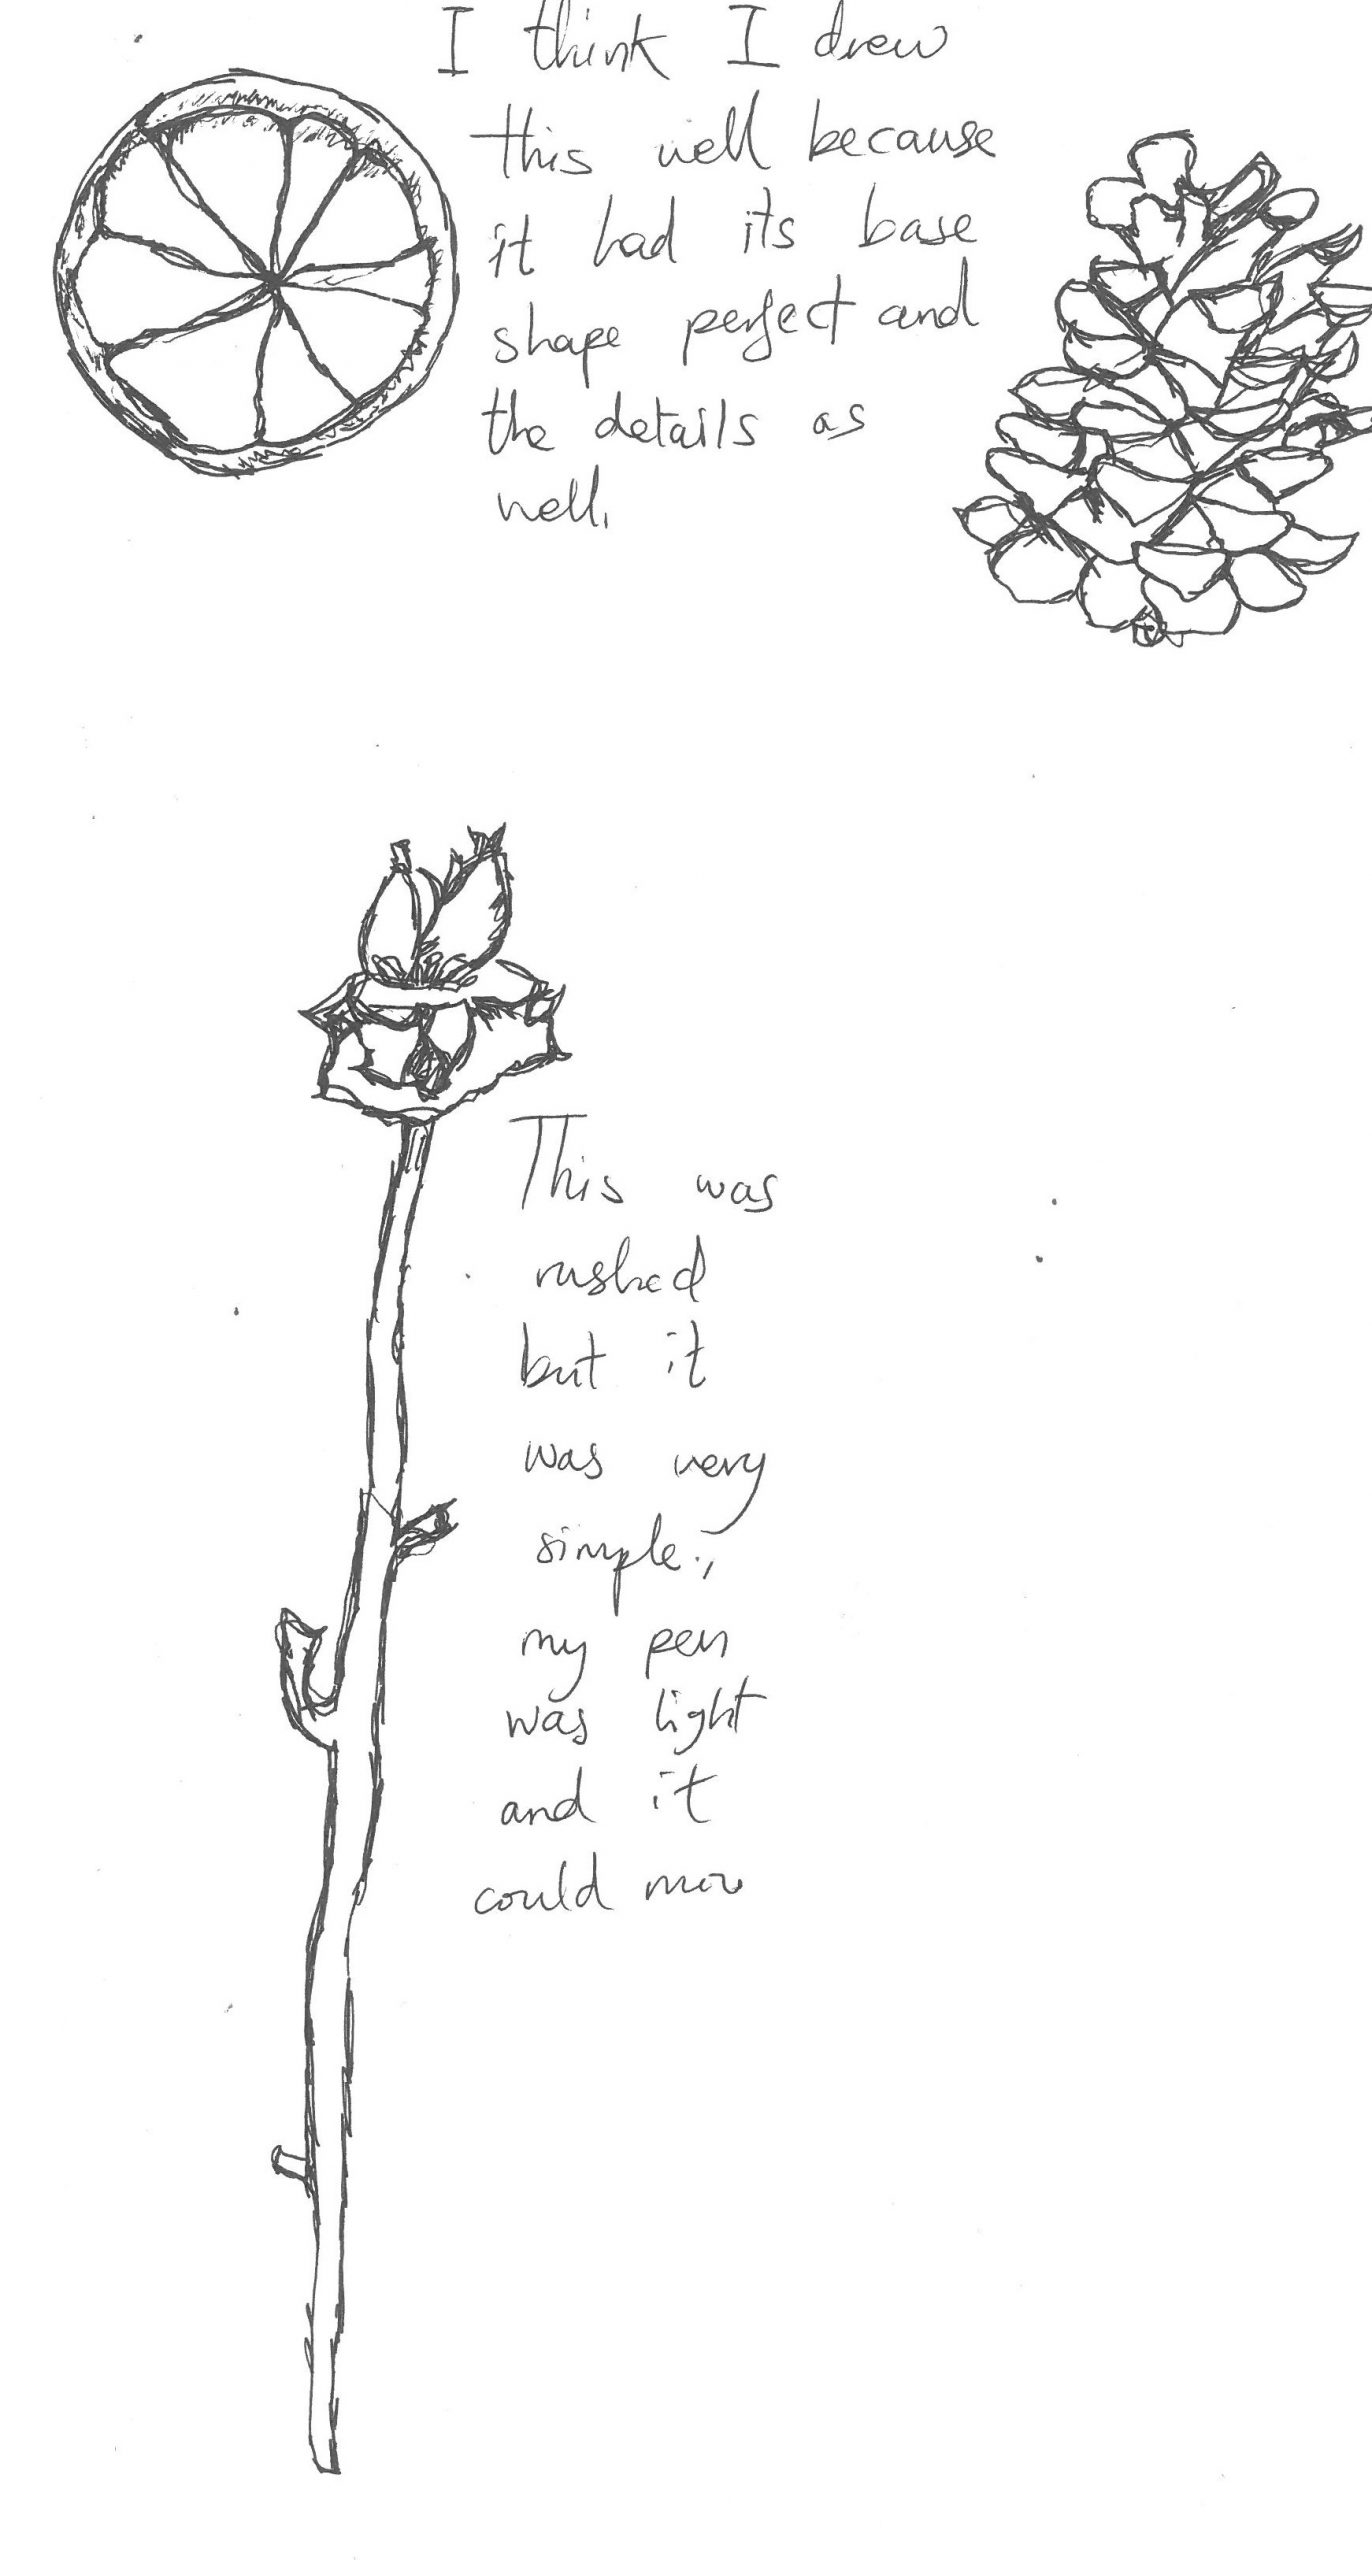 I think I drew
this well because
it had its base
shape perfect and
the details as
well.
This was
rushed
but it
was very
simple.,
my pen
was light
and it
could